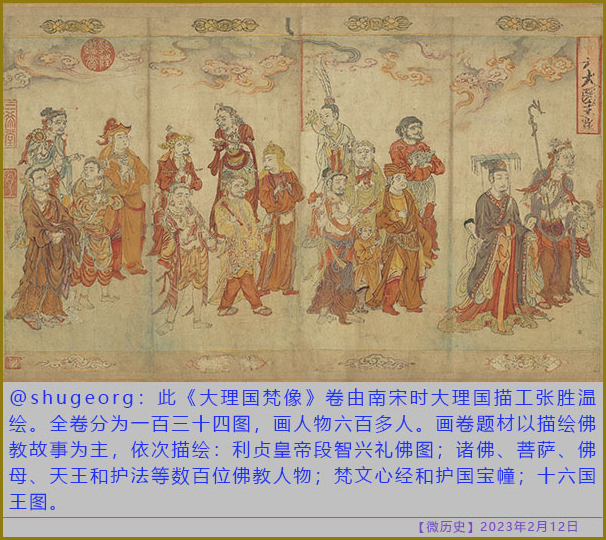 @shugeorg：此《大理国梵像》卷由南宋时大理国描工张胜温
绘。全卷分为一百三十四图，画人物六百多人。画卷题材以描绘佛
教故事为主，依次描绘：利贞皇帝段智兴礼佛图；诸佛、菩萨、佛
母、天王和护法等数百位佛教人物；梵文心经和护国宝幢；十六国
王图。
【微历史】2023年2月12日